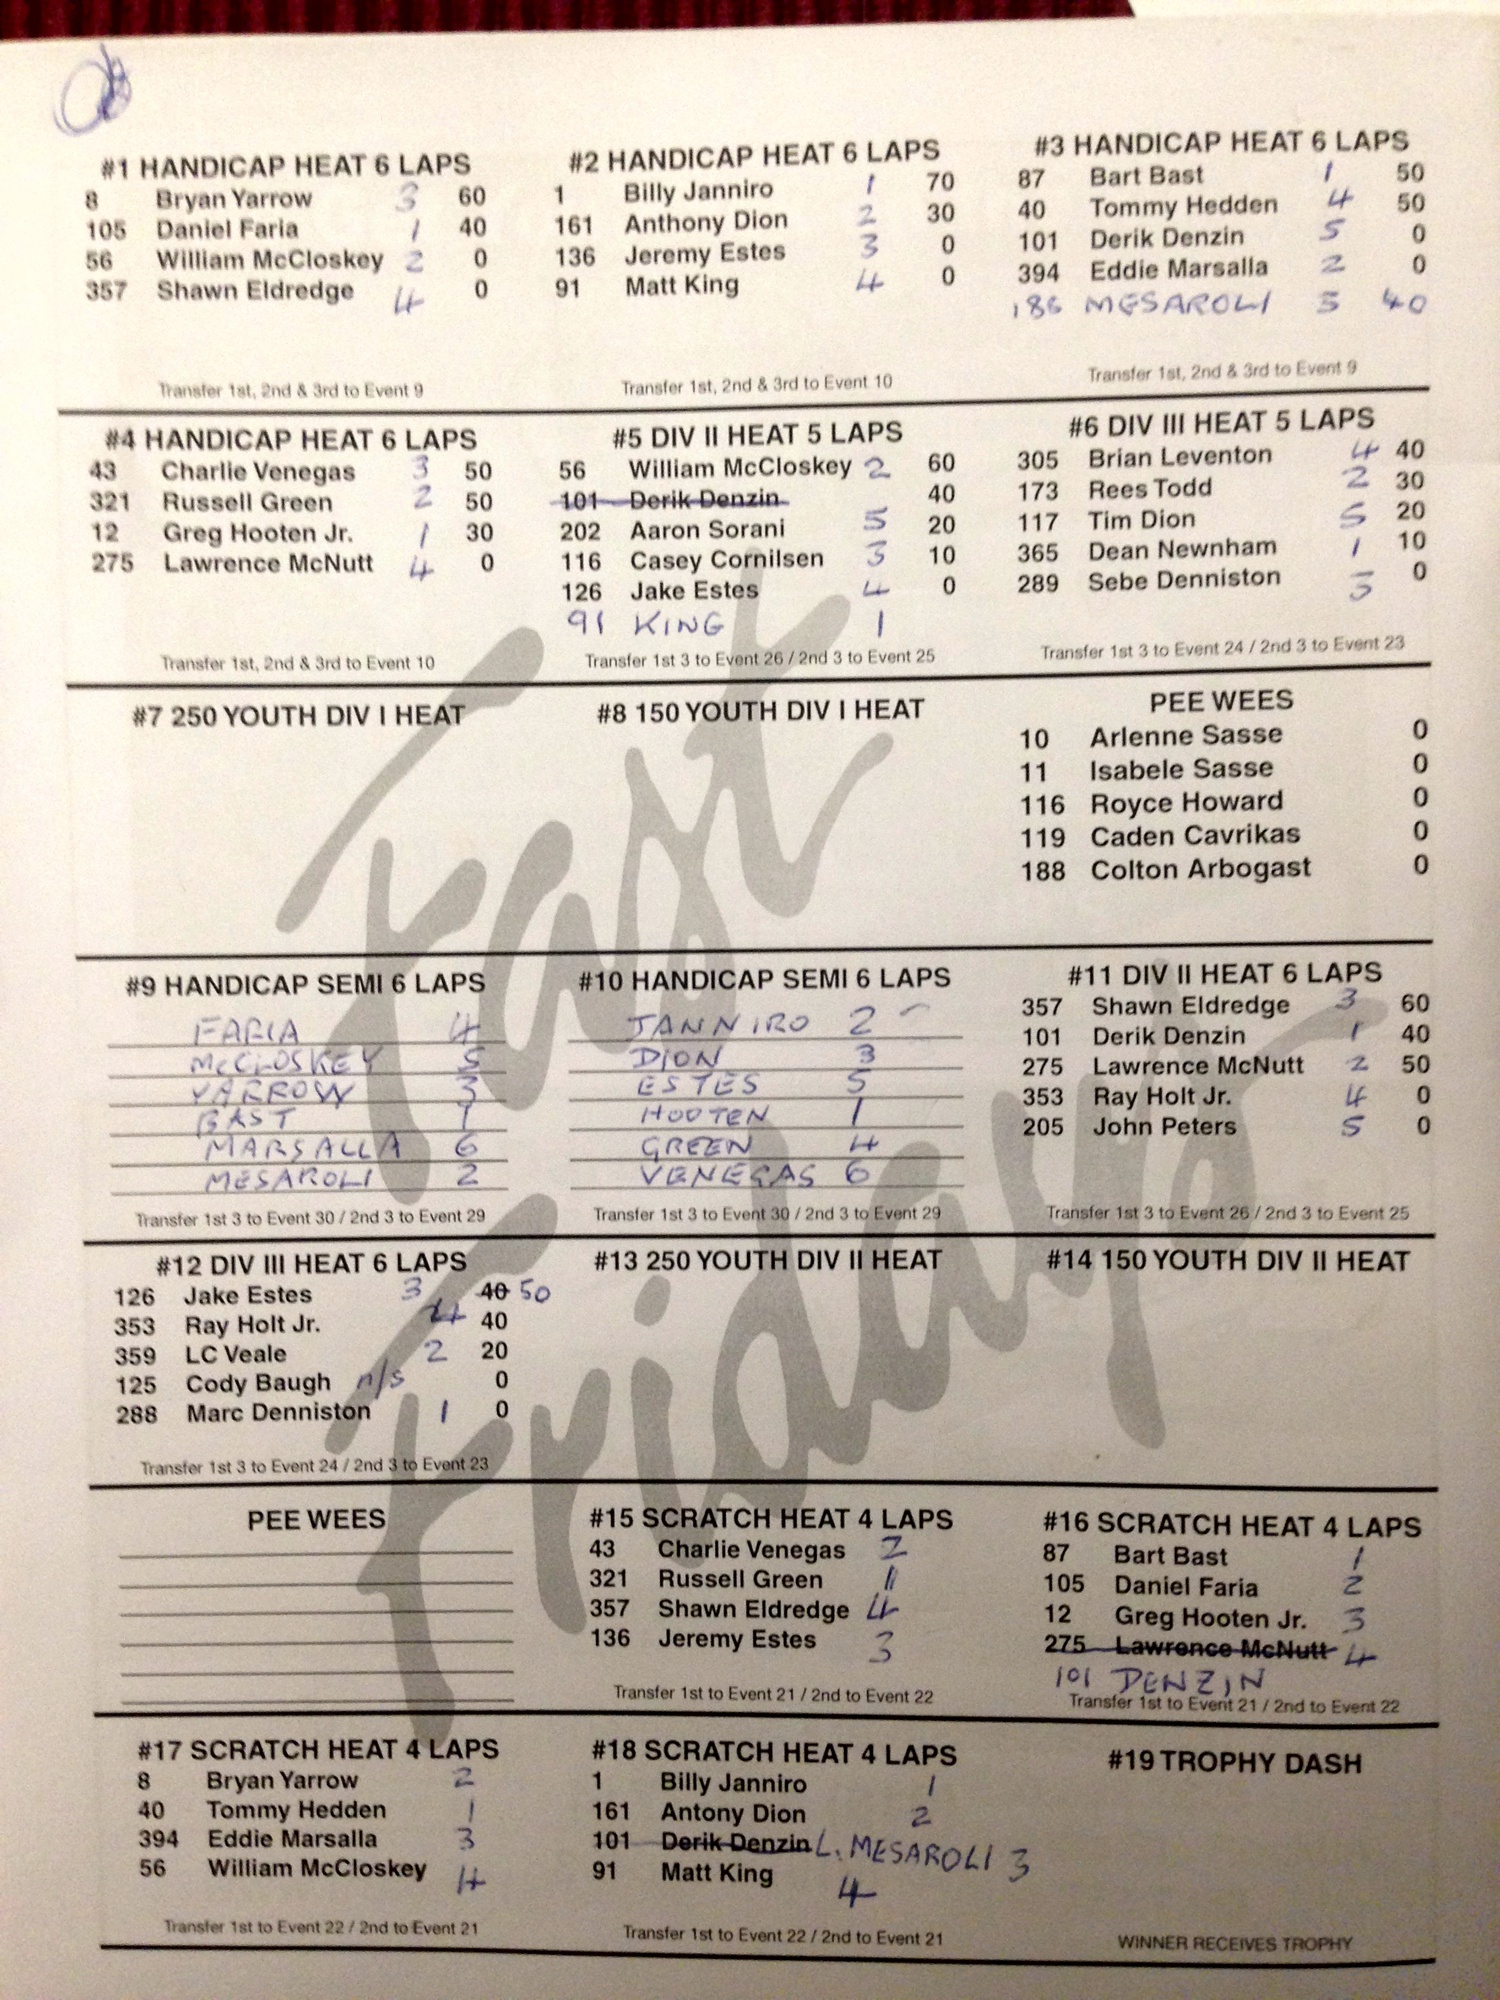 #1 HANDICAP HEAT 6 LAPS
8 Bryan Yarrow 3 60
105 Daniel Faria 1 40
56 William McCloskey 2 0
357 Shawn Eldredge 4 0
Transfer 1st, 2nd & 3rd to Event 9
#2 HANDICAP HEAT 6 LAPS
1 Billy Janniro 1 70
161 Anthony Dion 2 30
136 Jeremy Estes 3 0
91 Matt King 4 0
Transfer 1st, 2nd & 3rd to Event 10
#3 HANDICAP HEAT 6 LAPS
87 Bart Bast 1 50
40 Tommy Hedden 4 50
101 Derik Denzin 5 0
394 Eddie Marsalla 2 0
186 MESAROLI 3 40
Transfer 1st, 2nd & 3rd to Event 9
#4 HANDICAP HEAT 6 LAPS
43 Charlie Venegas 3 50
321 Russell Green 2 50
12 Greg Hooten Jr. 1 30
275 Lawrence McNutt 4 0
Transfer 1st, 2nd & 3rd to Event 10
#5 DIV II HEAT 5 LAPS
56 William McCloskey 2 60
101 Derik Denzin 40
202 Aaron Sorani 5 20
116 Casey Cornilsen 3 10
126 Jake Estes 4 0
91 KING 1
Transfer 1st 3 to Event 26 / 2nd 3 to Event 25
#6 DIV III HEAT 5 LAPS
305 Brian Leventon 4 40
173 Rees Todd 2 30
117 Tim Dion 5 20
365 Dean Newnham 1 10
289 Sebe Denniston 3 0
Transfer 1st 3 to Event 24 / 2nd 3 to Event 23
#7 250 YOUTH DIV I HEAT
#8 150 YOUTH DIV I HEAT
PEE WEES
10 Arlenne Sasse 0
11 Isabele Sasse 0
116 Royce Howard 0
119 Caden Cavrikas 0
188 Colton Arbogast 0
Fast
Fridays
#9 HANDICAP SEMI 6 LAPS
FARIA 4
McCLOSKEY 5
YARROW 3
BAST 1
MARSALLA 6
MESAROLI 2
Transfer 1st 3 to Event 30 / 2nd 3 to Event 29
#10 HANDICAP SEMI 6 LAPS
JANNIRO 2
DION 3
ESTES 5
HOOTEN 1
GREEN 4
VENEGAS 6
Transfer 1st 3 to Event 30 / 2nd 3 to Event 29
#11 DIV II HEAT 6 LAPS
357 Shawn Eldredge 3 60
101 Derik Denzin 1 40
275 Lawrence McNutt 2 50
353 Ray Holt Jr. 4 0
205 John Peters 5 0
Transfer 1st 3 to Event 26 / 2nd 3 to Event 25
#12 DIV III HEAT 6 LAPS
126 Jake Estes 3 40 50
353 Ray Holt Jr. 4 40
359 LC Veale 2 20
125 Cody Baugh n/s 0
288 Marc Denniston 1 0
Transfer 1st 3 to Event 24 / 2nd 3 to Event 23
#13 250 YOUTH DIV II HEAT
#14 150 YOUTH DIV II HEAT
PEE WEES
#15 SCRATCH HEAT 4 LAPS
43 Charlie Venegas 2
321 Russell Green 1
357 Shawn Eldredge 4
136 Jeremy Estes 3
Transfer 1st to Event 21 / 2nd to Event 22
#16 SCRATCH HEAT 4 LAPS
87 Bart Bast 1
105 Daniel Faria 2
12 Greg Hooten Jr. 3
275 Lawrence McNutt 4
101 DENZIN
Transfer 1st to Event 21 / 2nd to Event 22
#17 SCRATCH HEAT 4 LAPS
8 Bryan Yarrow 2
40 Tommy Hedden 1
394 Eddie Marsalla 3
56 William McCloskey 4
Transfer 1st to Event 22 / 2nd to Event 21
#18 SCRATCH HEAT 4 LAPS
1 Billy Janniro 1
161 Antony Dion 2
101 Derik Denzin L. MESAROLI 3
91 Matt King 4
Transfer 1st to Event 22 / 2nd to Event 21
#19 TROPHY DASH
WINNER RECEIVES TROPHY